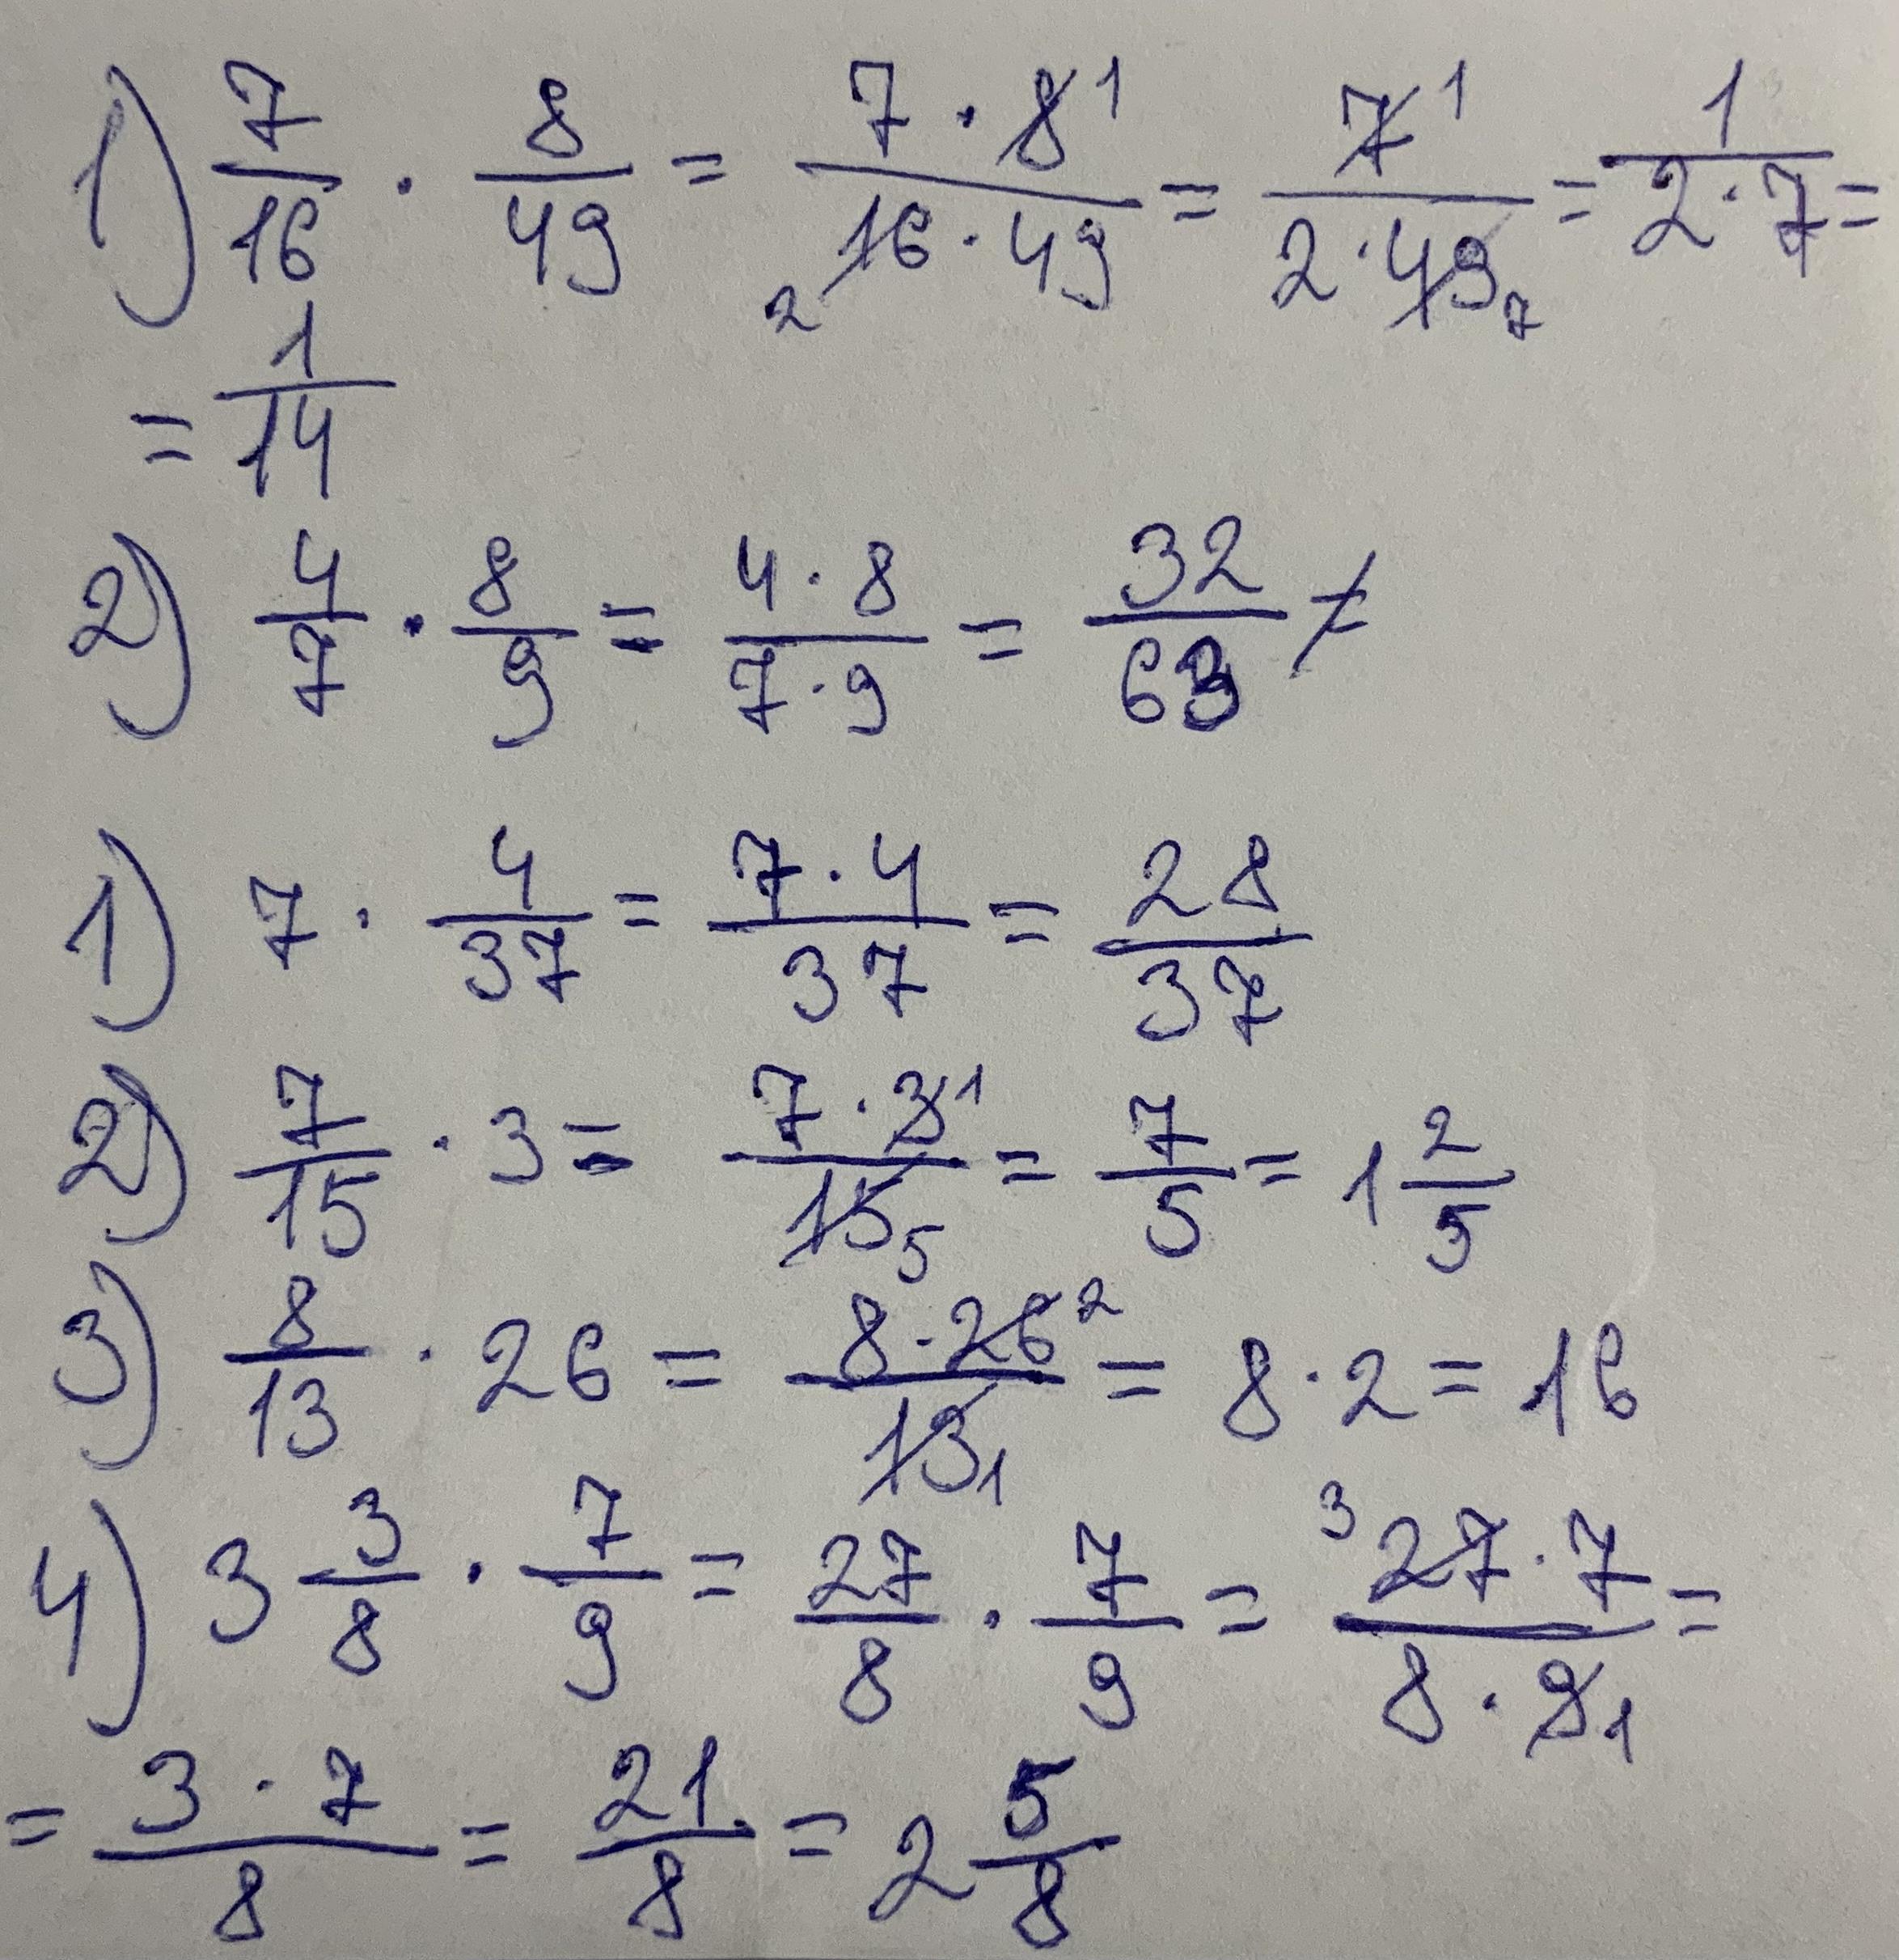 1) 7/16 · 8/49 = 7 · 8 1 / 2 16 · 49 = 7 1 / 2 · 49 7 = 1 / 2 · 7 =
= 1/14
2) 4/7 · 8/9 = 4 · 8 / 7 · 9 = 32/63
1) 7 · 4/37 = 7 · 4 / 37 = 28/37
2) 7/15 · 3 = 7 · 3 1 / 15 5 = 7/5 = 1 2/5
3) 8/13 · 26 = 8 · 26 2 / 13 1 = 8 · 2 = 16
4) 3 3/8 · 7/9 = 27/8 · 7/9 = 3 27 · 7 / 8 · 9 1 =
= 3 · 7 / 8 = 21/8 = 2 5/8